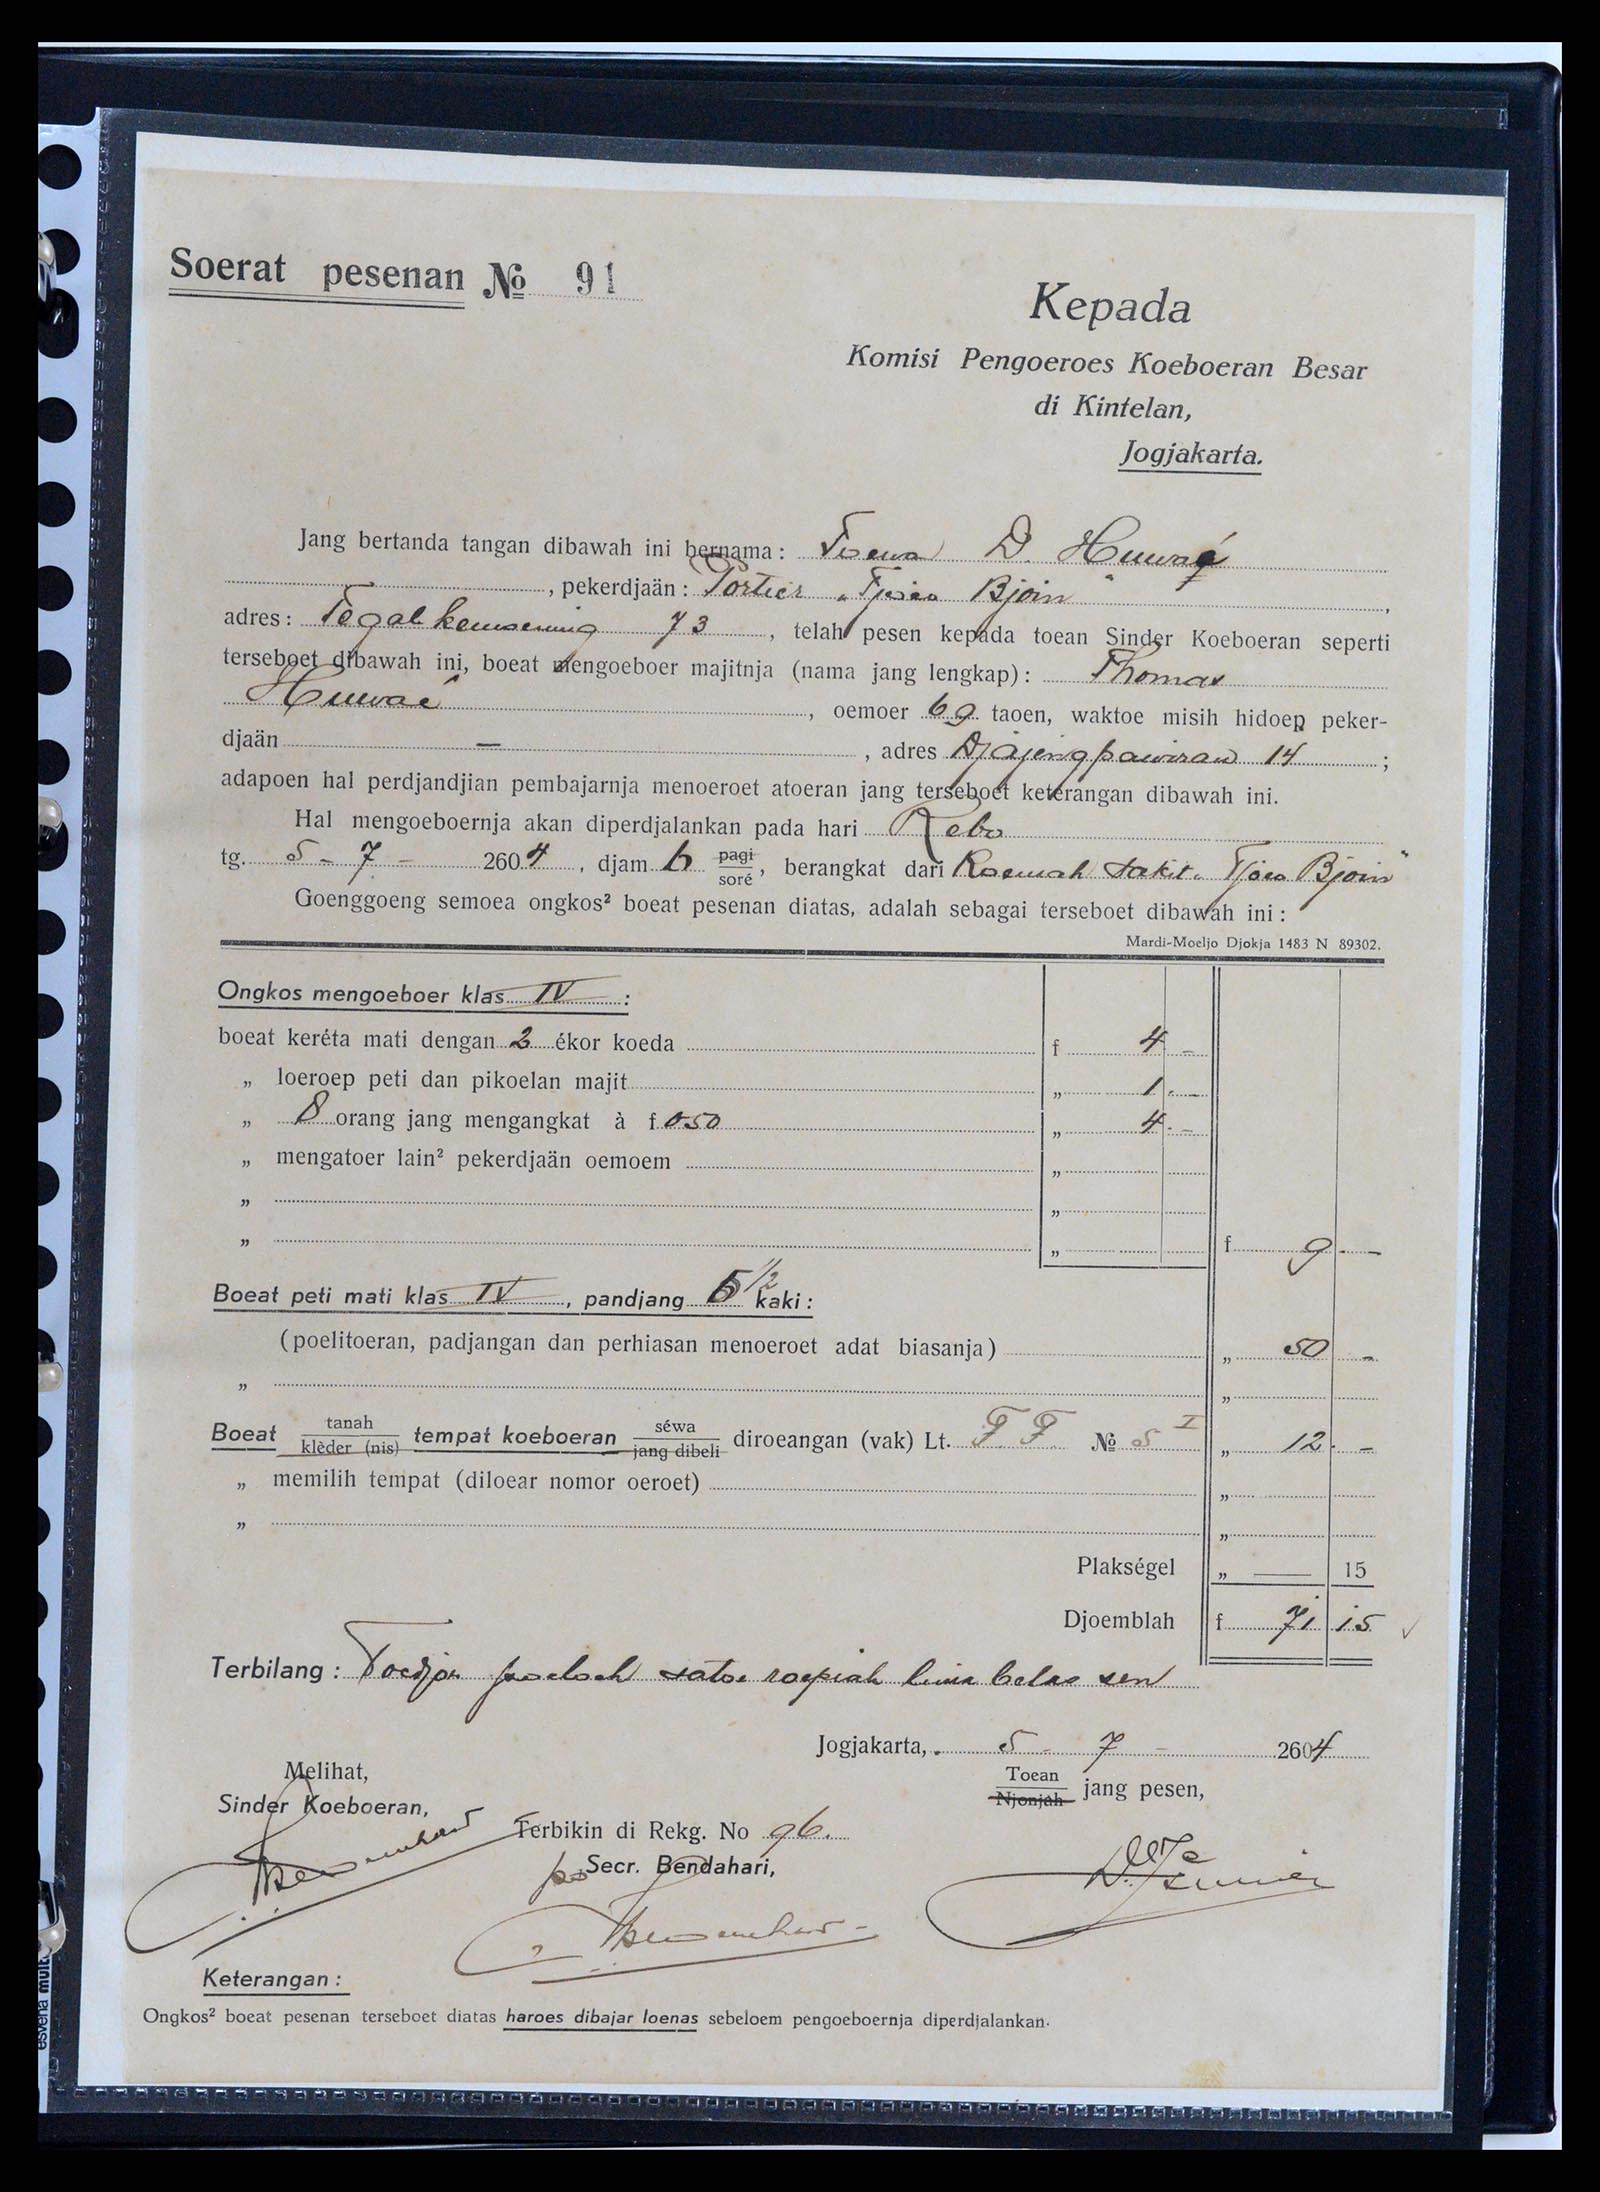 Soerat pesenan № 91
Kepada
Komisi Pengoeroes Koeboeran Besar
di Kintelan,
Jogjakarta.
Jang bertanda tangan dibawah ini bernama: Toean D. Huwaë
, pekerdjaän: Portier „Tjoeo Bjoin"
adres: Tegal kemoening 73, telah pesen kepada toean Sinder Koeboeran seperti
terseboet dibawah ini, boeat mengoeboer majitnja (nama jang lengkap): Thomas
Huwaë, oemoer 69 taoen, waktoe misih hidoep peker-
djaän —, adres Djajengpawiran 14;
adapoen hal perdjandjian pembajarnja menoeroet atoeran jang terseboet keterangan dibawah ini.
Hal mengoeboernja akan diperdjalankan pada hari Rebo
tg. 5 - 7 - 2604, djam pagi/soré, berangkat dari Roemah sakit „Tjoeo Bjoin"
Goenggoeng semoea ongkos² boeat pesenan diatas, adalah sebagai terseboet dibawah ini:
Mardi-Moeljo Djokja 1483 N 89302.
Ongkos mengoeboer klas IV:
boeat keréta mati dengan 2 ékor koeda f 4 -
„ loeroep peti dan pikoelan majit „ 1 . -
„ 8 orang jang mengangkat à f 0.50 „ 4 . -
„ mengatoer lain² pekerdjaän oemoem „
„ „
„ „ f 9 . -
Boeat peti mati klas IV, pandjang 5 1/2 kaki:
(poelitoeran, padjangan dan perhiasan menoeroet adat biasanja) „ 50 -
„ „
Boeat tanah/klèder (nis) tempat koeboeran séwa/jang dibeli diroeangan (vak) Lt. F F. № 5 I „ 12 . -
„ memilih tempat (diloear nomor oeroet) „
„ „
Plakségel „ — 15
Djoemblah f 71 15
Terbilang: Toedjoe poeloeh satoe roepiah lima belas sen
Jogjakarta, 5 - 7 - 2604
Melihat,
Toean/Njonjah jang pesen,
Sinder Koeboeran,
Terbikin di Rekg. No 96.
Secr. Bendahari,
Keterangan:
Ongkos² boeat pesenan terseboet diatas haroes dibajar loenas sebeloem pengoeboernja diperdjalankan.